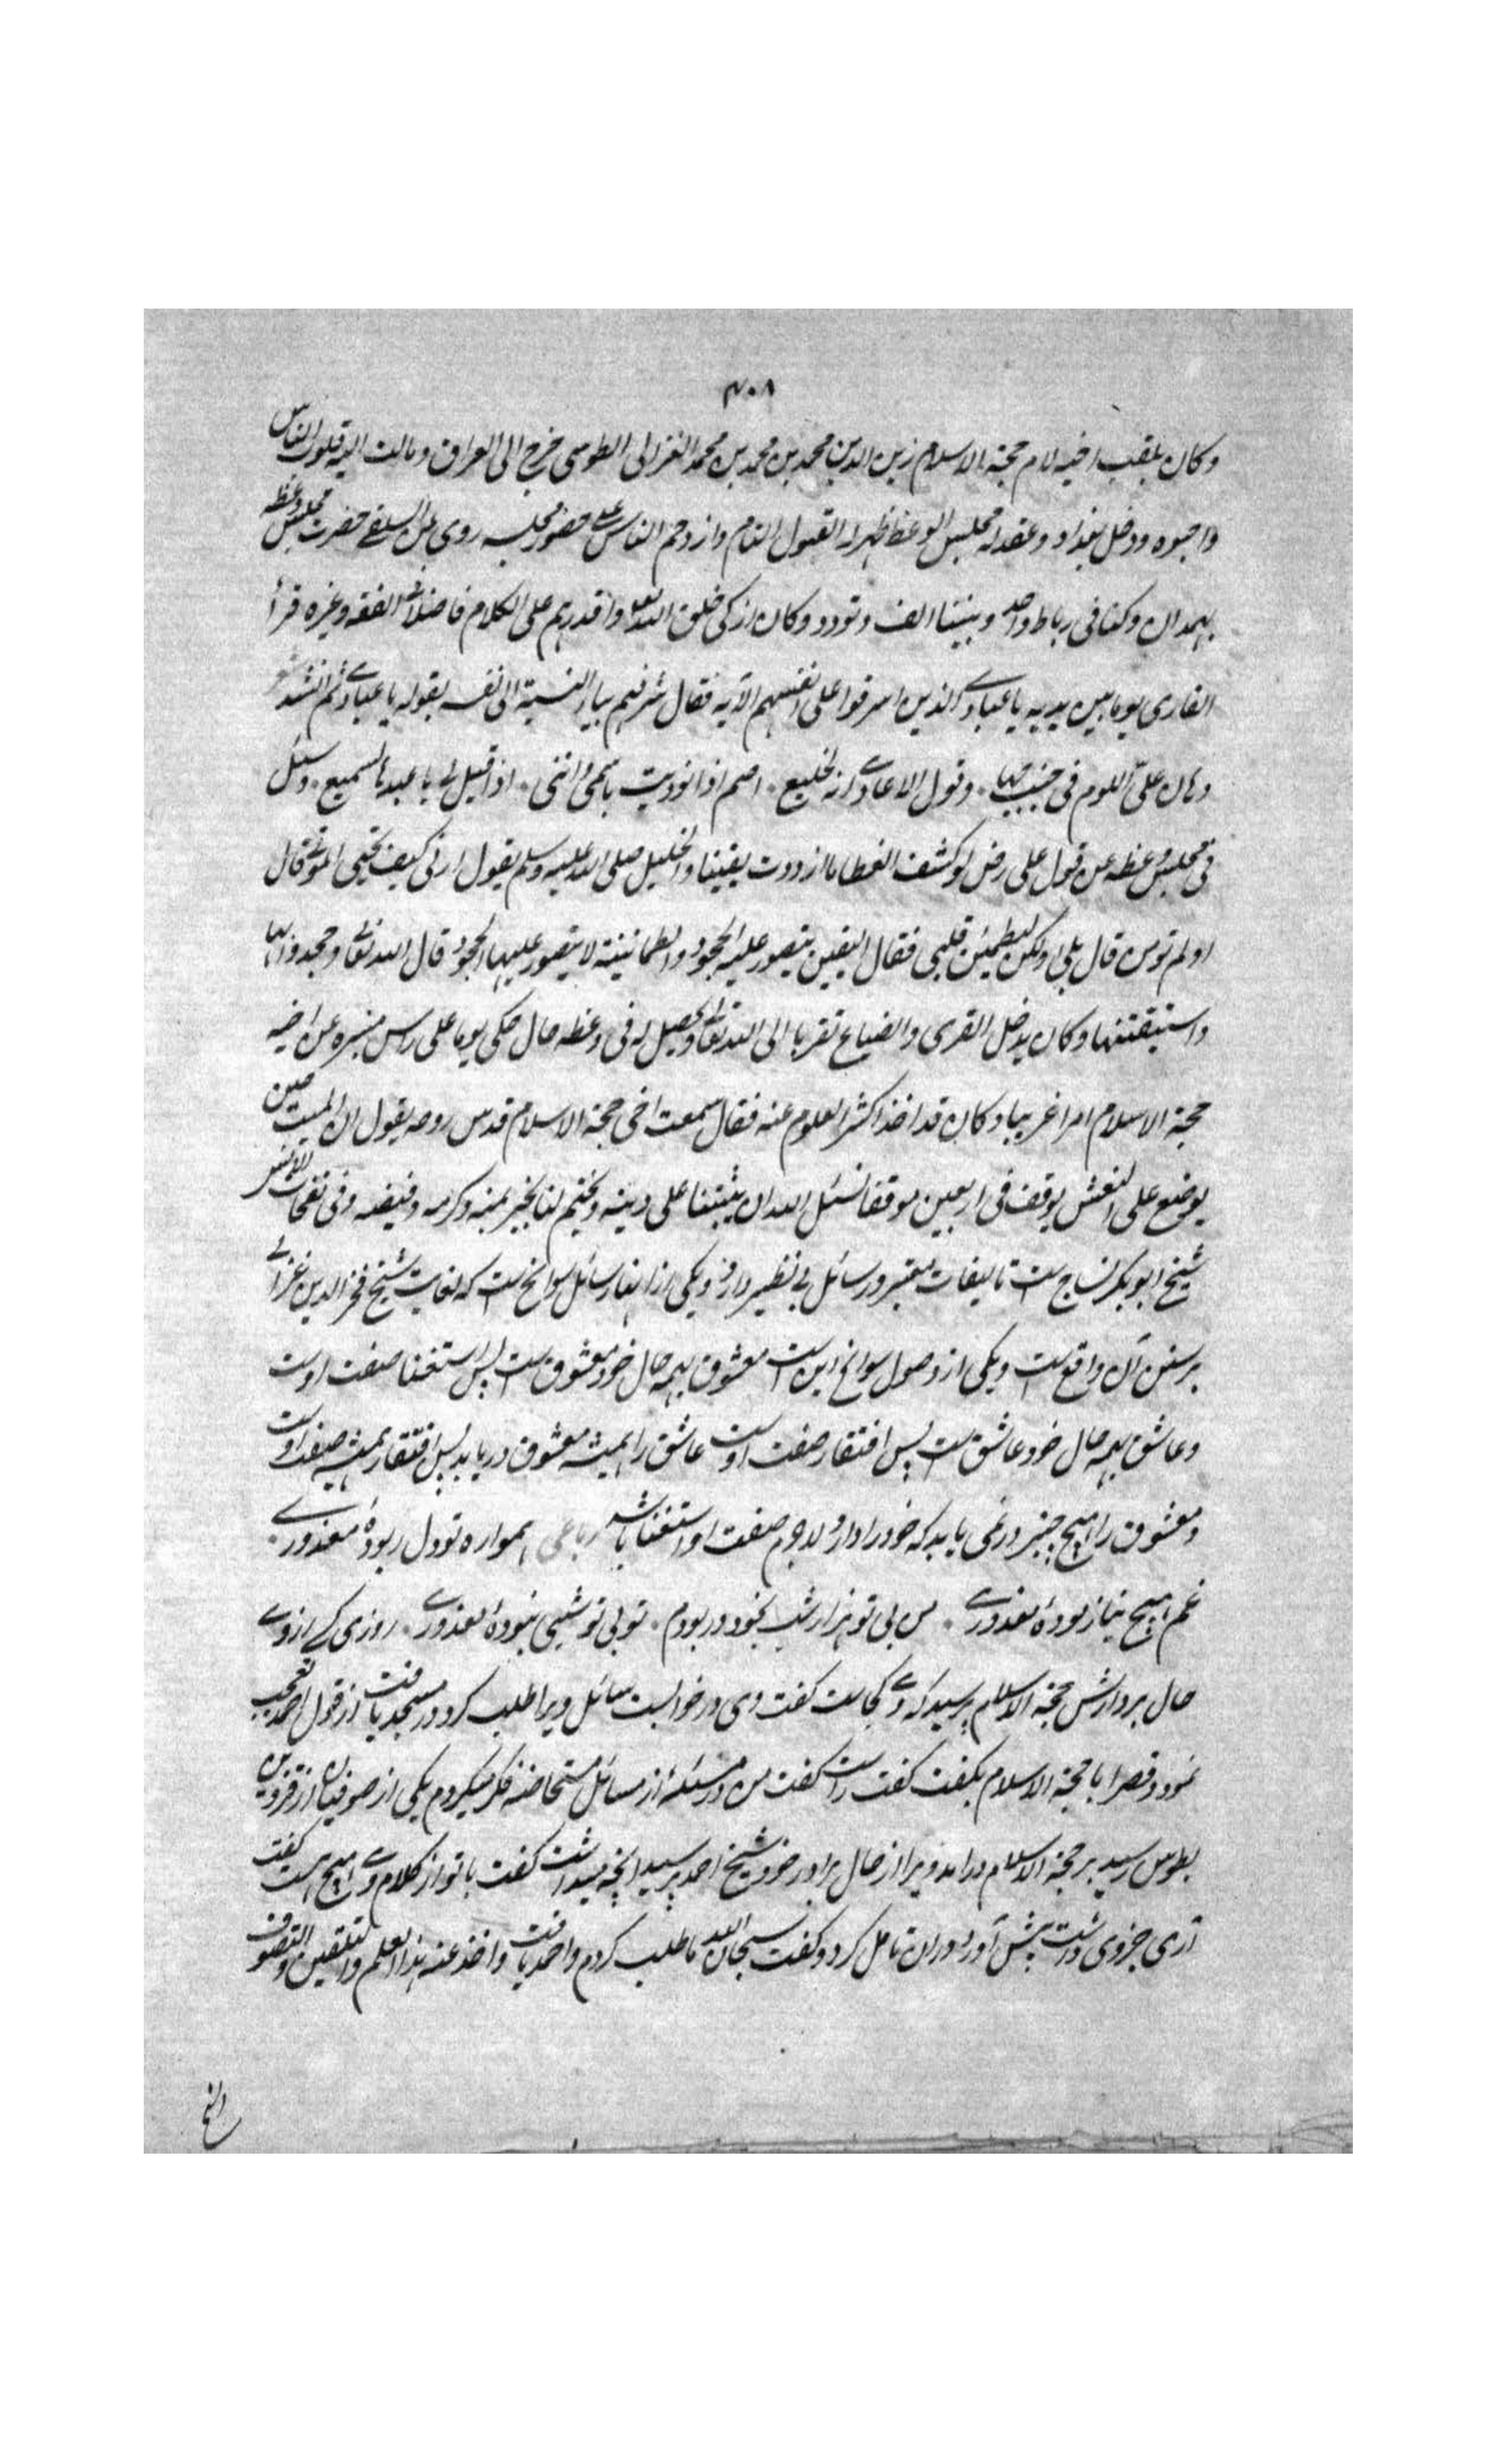 ۳۰۸
وکان یلقب اخیه لام حجة الاسلام زین الدین محمد بن محمد بن محمد الغزالی الطوسی خرج الی العراق ومالت الیه قلوب الناس
واحبوه ودخل بغداد وعقد له مجلس الوعظ ظهر له القبول التام وازدحم الناس علی حضور مجلسه روی عن السلفی حضرت مجلس وعظه
بهمدان وکنا فی رباط واحد وبیننا الف وتودد وکان ازکی خلق الله تعالی واقدرهم علی الکلام فاضلا فی الفقه وغیره قرأ
القاری یوما بین یدیه یا عبادی الذین اسرفوا علی انفسهم الآیه فقال شرفهم بیاء النسبة الی نفسه بقوله یا عبادی ثم انشد
وهان علیّ اللوم فی جنب حبها ۰ وقول الاعادی انه لخلیع ۰ اصم اذا نودیت باسمی واننی ۰ اذا قیل لی یا عبدها لسمیع ۰ وسئل
فی مجلس وعظه عن قول علی رض لو کشف الغطا ما ازددت یقینا والخلیل صلی الله علیه وسلم یقول ارنی کیف تحیی الموتی قال
اولم تومن قال بلی ولکن لیطمئن قلبی فقال الیقین یتصور علیه الجحود والطمانینة لا یتصور علیها الجحود قال الله تعالی وجحدوا بها
واستیقنتها وکان یدخل القری والضیاع تقربا الی الله تعالی ویحصل له فی وعظه حال حکی یوما علی راس منبره عن اخیه
حجة الاسلام امرا غریبا وکان قد اخذ اکثر العلوم عنه فقال سمعت اخی حجة الاسلام قدس روحه یقول ان المیت حین
یوضع علی النعش یوقف فی اربعین موقفا نسئل الله ان یثبتنا علی دینه ویختم لنا بخیر بمنه وکرمه وفیضه وفی نفحات الانس
شیخ ابوبکر نساج است تالیفات معتبر ورسائل بی نظیر دارد ویکی ازانها رسائل سوانح است که لمعات شیخ فخر الدین عراقی
بر سنن آن واقع است ویکی از فصول سوانح این است معشوق بهمه حال خود معشوق است پس استغنا صفت اوست
وعاشق بهمه حال خود عاشق است پس افتقار صفت اوست عاشق را همیشه معشوق درباید پس افتقار همیشه صفت اوست
ومعشوق را هیچ چیز در نمی باید که خود را دارد لاجرم صفت او استغنا باشد رباعی همواره تو دل ربودهٔ معذوری ۰
غم هیچ نیازمودهٔ معذوری ۰ من بی تو هزار شب بخون در بودم ۰ تو بی تو شبی نبودهٔ معذوری ۰ روزی کسی از وی
حال برادرش حجة الاسلام پرسید که وی کجاست گفت وی در خون است سائل ویرا طلب کرد در مسجد یافت از قول احمد تعجب
نمود وقصه را با حجة الاسلام بگفت گفت راست گفت من در مسئلهٔ از مسائل مستحاضه فکر میکردم یکی از صوفیان از قزوین
بطوس رسید بر حجة الاسلام درامد ویرا از حال برادر خود شیخ احمد پرسید آنچه میدانست گفت با تو از کلام وی هیچ هست گفت
آری جزوی داشت پیش آورد دران تامل کرد وگفت سبحان الله ما طلب کردم واحمد یافت واخذ عنه هذا العلم والتلقین والتصوف